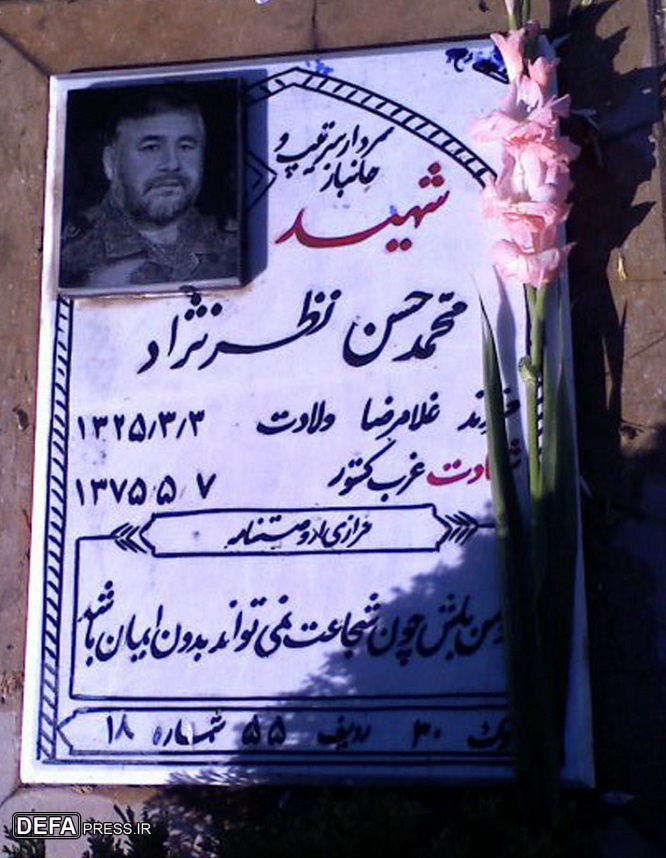 سردار سرتیپ و
جانباز
شهید
محمد حسن نظرنژاد
فرزند غلامرضا ولادت ۱۳۲۵/۳/۳
شهادت غرب کشور ۱۳۷۵ ۵ ۷
فرازی از وصیتنامه
مؤمن باش چون شجاعت نمی تواند بدون ایمان باشد
بلوک ۳۰ ردیف ۵۵ شماره ۱۸
DEFA PRESS.IR